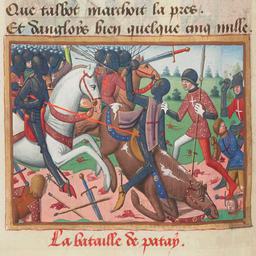 Que talbot marchoit la pres.
Et danglois bien quelque cinq mille.
La bataille de patay.